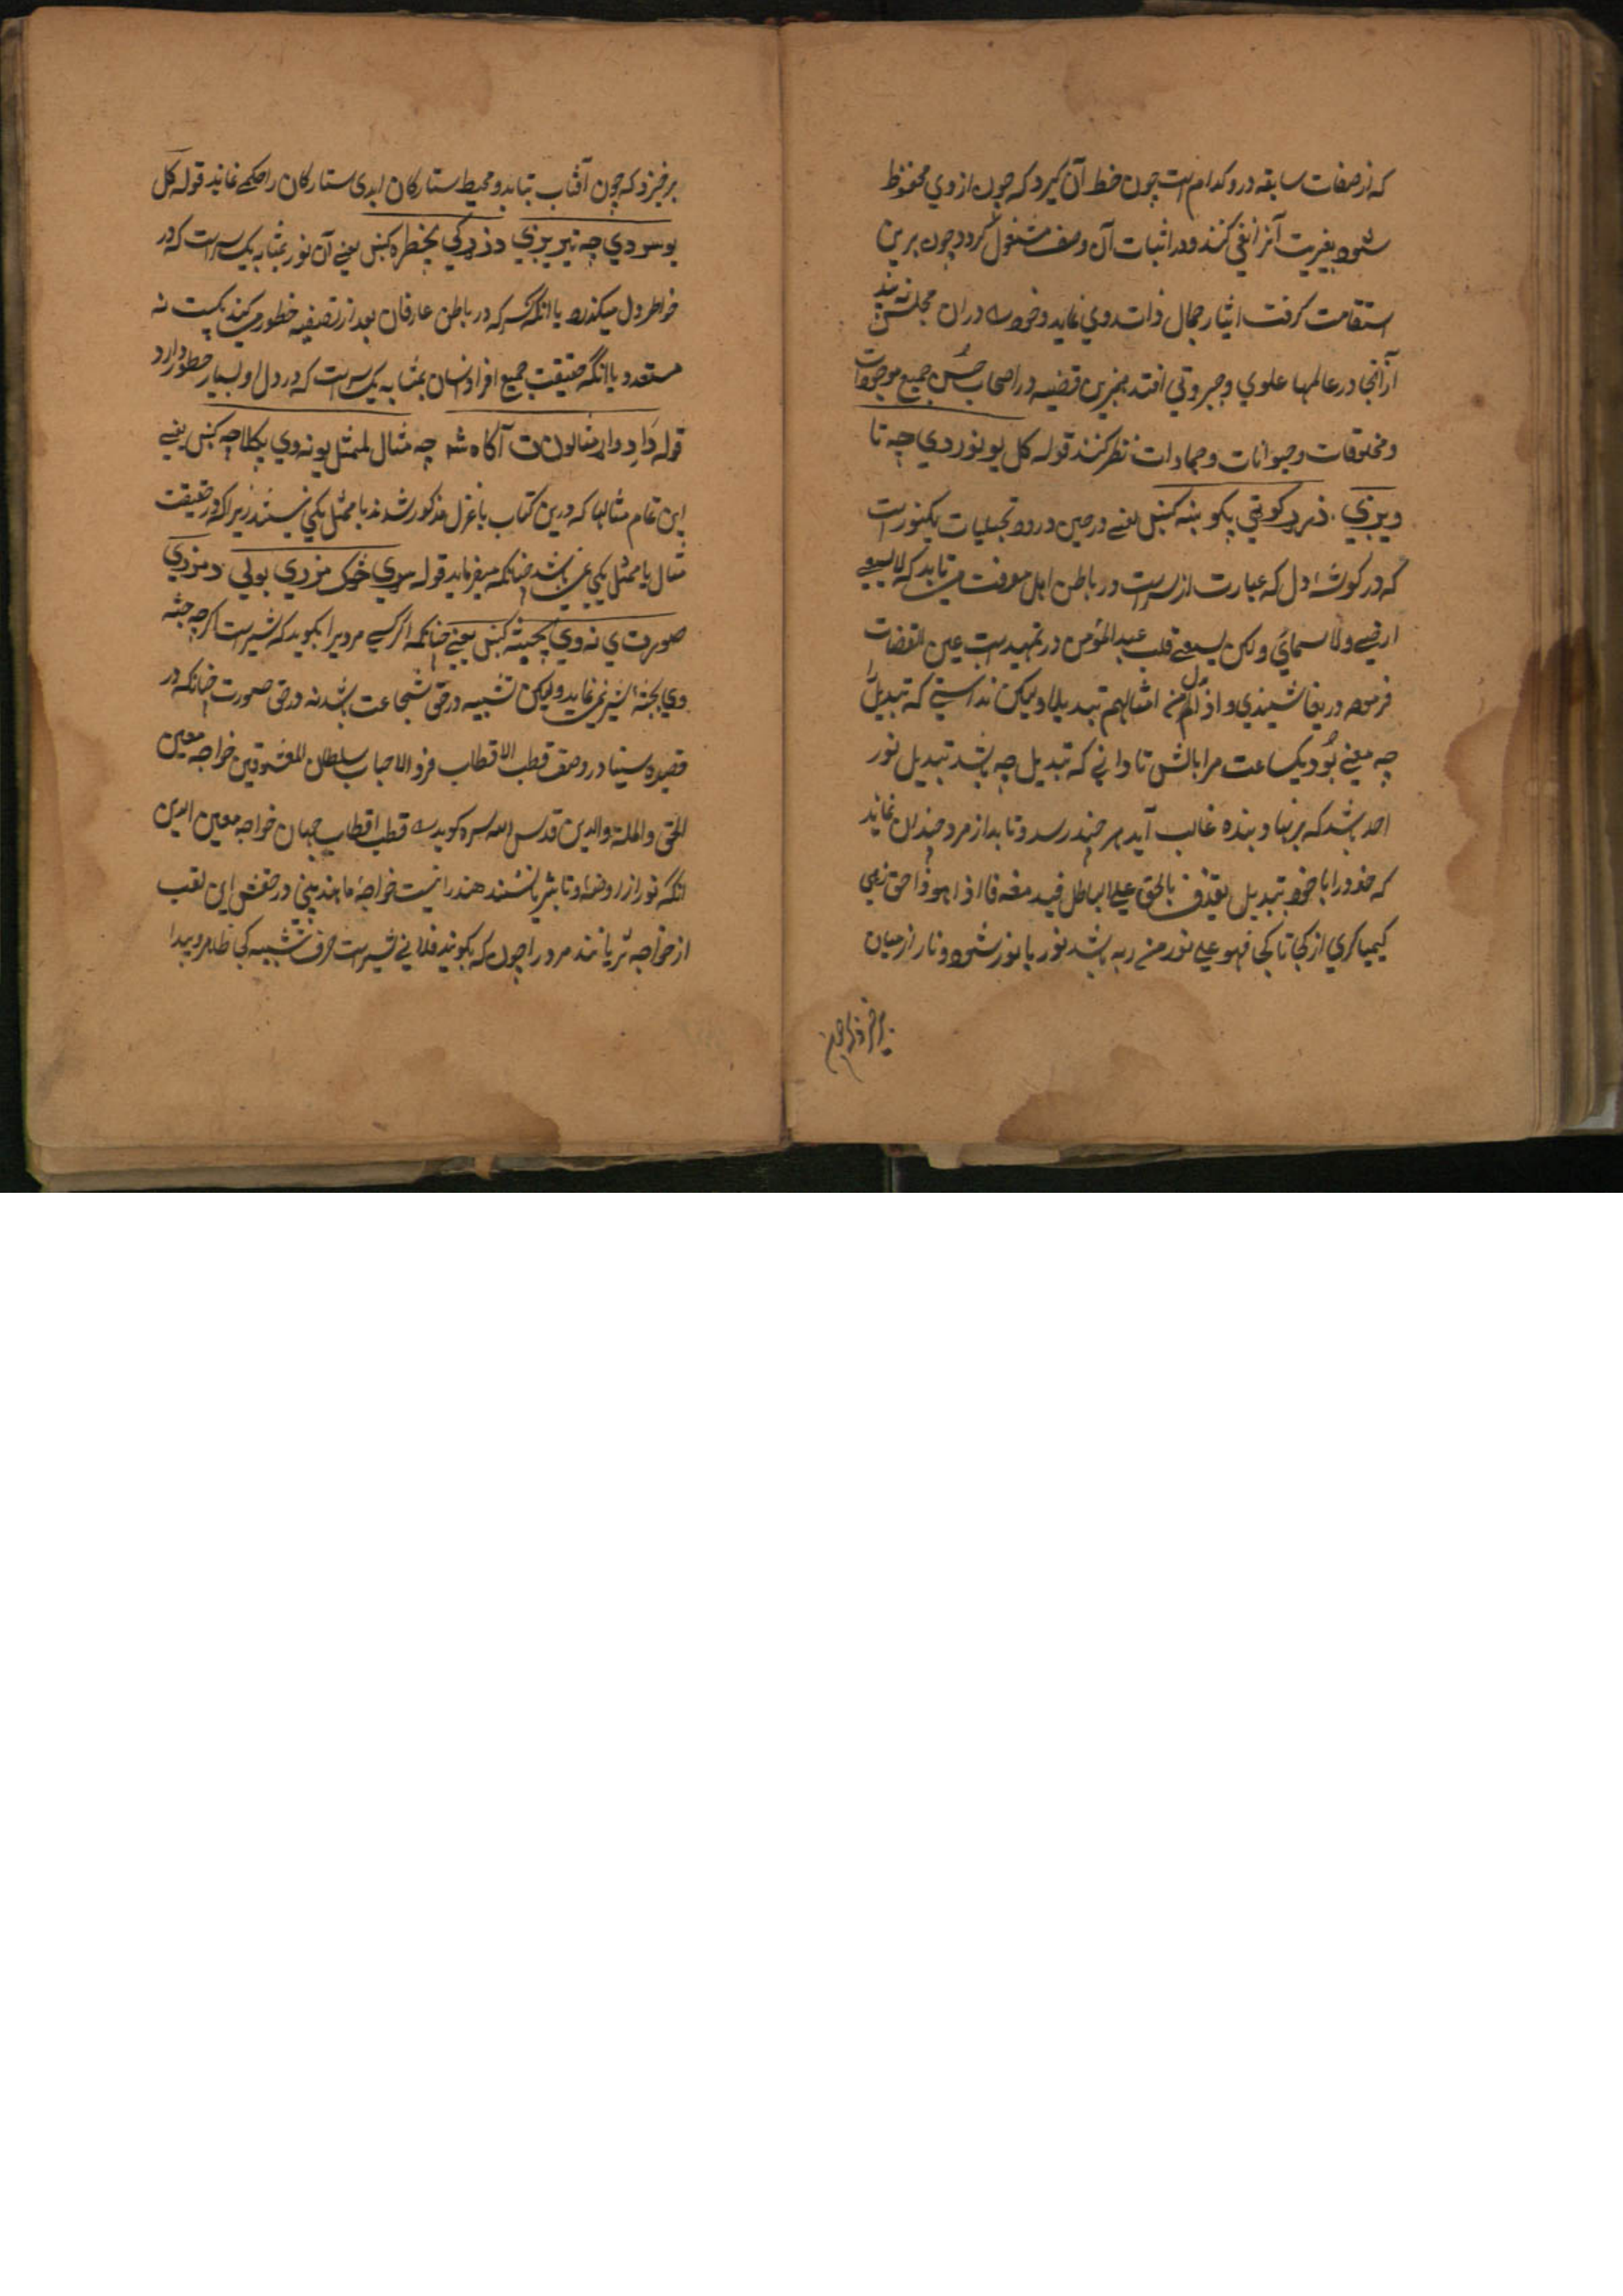 که از صفات سابقه درو کدام است چون خط آن گیرد که چون از وي محفوظ
شود بغیریت آنرا نفي کنند ودر اثبات آن وصف مشغول گردد چون برین
استقامت گرفت ایثار جمال ذات روي نماید وخود را دران مجلس نه بیند
از آنجا در عالمها علوي وجبروتي افتد همچنین قضیه در اصحاب حسن جمیع موجودات
ومخلوقات وحیوانات وجمادات نظر کنند قوله کل یو نور دي چه تا
ویزني ذړه کوټې پکو بنه کښل یعنے در حین ورود تجلیات یک نور است
که در گوشهٔ دل که عبارت از سر است در باطن اهل معرفت مي تابد که لا یسعنے
ارضے ولا سمائي ولکن یسعنے قلب عبد المؤمن در تمهید است عین القضات
فرموده دریغا شنیدي واذ لهم من امثالهم تبدیلا ولیکن ندانستے که تبدیل را
چه معنے بود یکساعت مرا باش تا داني که تبدیل چه باشد تبدیل نور
احد باشد که بر نهاد بنده غالب آید هر چند رسد وتابد از مرد چندان نماند
که خود را با خود تبدیل یقذف بالحق علی الباطل فیدمغه فاذا هو زاحق زهي
کیمیاگري از کجا تا کجا فهو علے نور من ربه باشد نور با نور شود ونار از میان
برخیزد که چون
برخیزد که چون آفتاب بتابد ومحیط ستارگان ابدی ستارگان را حکمے نماند قوله کل
یو سر دي چه تیریږي د زړګي بخطره کښل یعنے آن نور بمثابه یک سر است که در
خواطر دل میگذرد یا آنکه سر که در باطن عارفان بعد از تصفیه خطور میکند یکیست نه
متعدد یا آنکه حقیقت جمیع افراد انسان بمثابه یک سر است که در دل او بسیار خطور دارد
قوله دا دواړ مثالونه ت آگاه شه چه مثال لممثل یو نه وي پکلاچه کښل یعنے
این تمام مثالها که درین کتاب یا غزل مذکور شدند با ممثل یکي نیستند زیرا که در حقیقت
مثال با ممثل یکي نمي باشد چنانکه میفرماید قوله سړي څوک مزري بولي د مزري
صورت ي نه وي پجثه کښل یعنے چنانکه اگر کسے مردیرا بگوید که شیر است اگرچه جثه
وي بجثهٔ شیر نمي نماید ولیکن تشبیه در حق شجاعت باشد نه در حق صورت چنانکه در
قصیده سینا در وصف قطب الاقطاب فرد الاحباب سلطان المعشوقین خواجه معین
الحق والملة والدین قدس الله سره گوید قطب اقطاب جهان خواجه معین الدین
آنکه نور از روضهٔ او تا ثریا شد هند را نیست خواجهٔ ما هند بیني در صفتش این لقب
از خواجه ثریا شد مرورا چون که بگویند فلاني شیر است حرف تشبیه کجا ظاهر وپیدا